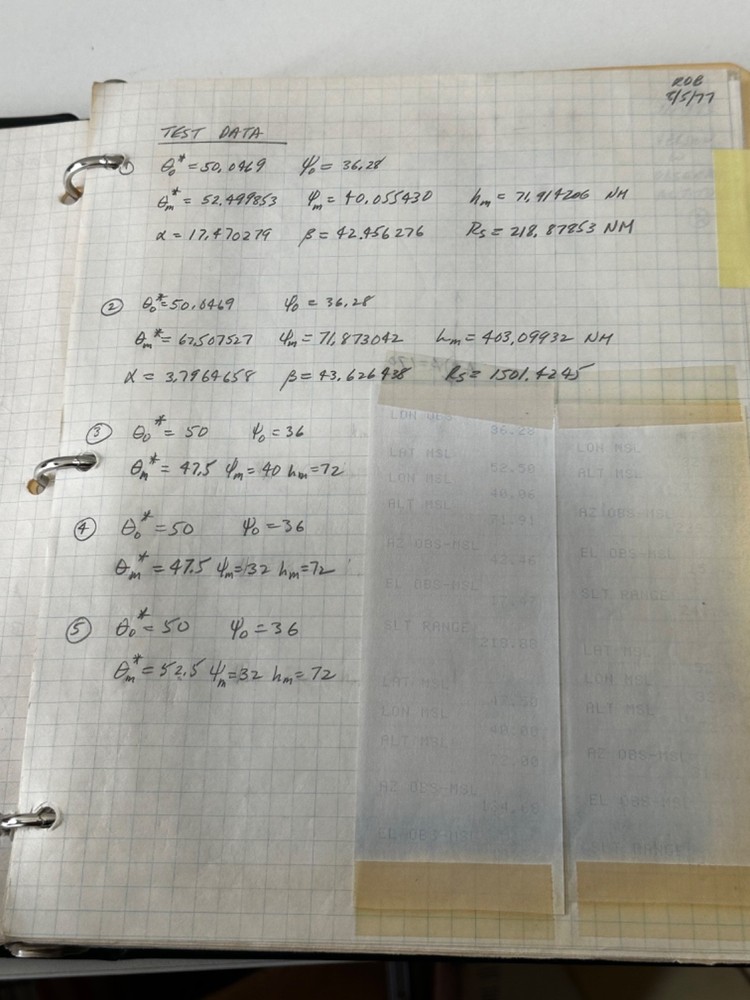 ROB
8/5/77
TEST DATA
① θ₀* = 50.0469 ψ₀ = 36.28
θₘ* = 52.499853 ψₘ = 40.055430 hₘ = 71.914206 NM
α = 17.470279 β = 42.456276 Rs = 218.87853 NM
② θ₀* = 50.0469 ψ₀ = 36.28
θₘ* = 67.507527 ψₘ = 71.873042 hₘ = 403.09932 NM
α = 3.7964658 β = 43.626438 Rs = 1501.4245
③ θ₀* = 50 ψ₀ = 36
θₘ* = 47.5 ψₘ = 40 hₘ = 72
④ θ₀* = 50 ψ₀ = 36
θₘ* = 47.5 ψₘ = 32 hₘ = 72
⑤ θ₀* = 50 ψ₀ = 36
θₘ* = 52.5 ψₘ = 32 hₘ = 72
LON OBS
36.28
LAT MSL
52.50
LON MSL
40.06
ALT MSL
71.91
AZ OBS-MSL
42.46
EL OBS-MSL
17.47
SLT RANGE
218.88
LAT MSL
47.50
LON MSL
40.00
ALT MSL
72.00
AZ OBS-MSL
134.68
EL OBS-MSL
LON MSL
ALT MSL
AZ OBS-MSL
EL OBS-MSL
SLT RANGE
LAT MSL
LON MSL
ALT MSL
AZ OBS-MSL
EL OBS-MSL
SLT RANGE